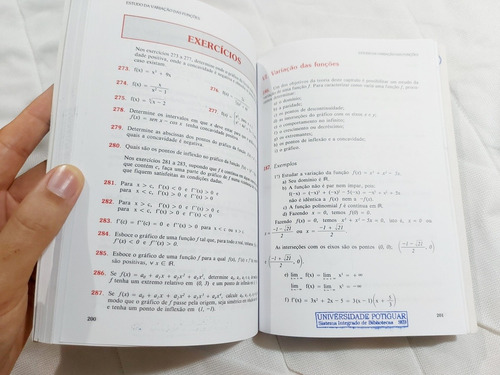 ESTUDO DA VARIAÇÃO DAS FUNÇÕES
EXERCÍCIOS
Nos exercícios 273 a 277, determine onde o gráfico da
dade positiva, onde a concavidade é negativa
273. f(x) = x³ + 9x
274. f(x) =
275. f(x) =
276.
277.
278. Determine os intervalos em que x deve estar para que o
f(x) = sen x − cos x tenha concavidade positiva.
279. Determine as abscissas dos pontos do gráfico da
quais a concavidade é negativa.
280. Quais são os pontos de inflexão no gráfico da função
Nos exercícios 281 a 283, supondo que f é contínua em
que contém c, faça uma parte do gráfico de f
fiquem satisfeitas as condições dadas.
281. Para x > c, f'(x) < 0 e f''(x) > 0
Para x < c, f'(x) > 0 e f''(x) > 0
282. Para x > c, f'(x) > 0 e f''(x) > 0
Para x < c, f'(x) > 0 e f''(x) < 0
283. f''(c) = f'(c) = 0 e f''(x) > 0 para x < c ou x > c
284. Esboce o gráfico de uma função f tal que, para todo x real,
f(x) < 0 e f''(x) > 0.
285. Esboce o gráfico de uma função f para a qual f(x), f'(x) e f''(x)
são positivas, ∀ x ∈ ℝ.
286. Se f(x) = a₀ + a₁x + a₂x² + a₃x³, determine a₀, a₁,
f tenha um extremo relativo em (0, 3) e um ponto de inflexão
287. Se f(x) = a₀ + a₁x + a₂x² + a₃x³ + a₄x⁴, calcule a₀, a₁,
modo que o gráfico de f passe pela origem, seja simétrico em relação
e tenha um ponto de inflexão em (1, −1).
200
VI. Variação das funções
186. Um dos objetivos da teoria deste capítulo é possibilitar um estudo da
variação de uma função f. Para caracterizar como varia uma função f, procu-
ramos determinar:
a) o domínio;
b) a paridade;
c) os pontos de descontinuidade;
d) as interseções do gráfico com os eixos x e y;
e) o comportamento no infinito;
f) o crescimento ou decréscimo;
g) os extremantes;
h) os pontos de inflexão e a concavidade;
i) o gráfico.
187. Exemplos
1º) Estudar a variação da função f(x) = x³ + x² − 5x.
a) Seu domínio é ℝ.
b) A função não é par nem ímpar, pois:
f(−x) = (−x)³ + (−x)² − 5(−x) = −x³ + x² + 5x
não é idêntica a f(x) nem a −f(x).
c) A função polinomial f é contínua em ℝ.
d) Fazendo x = 0, temos f(0) = 0.
Fazendo f(x) = 0, temos x³ + x² − 5x = 0, isto é, x = 0 ou
x = (−1 − √21)/2 ou x = (−1 + √21)/2.
As interseções com os eixos são os pontos (0, 0), ((−1 − √21)/2, 0)
e) lim f(x) = lim x³ = +∞
lim f(x) = lim x³ = −∞
f) f'(x) = 3x² + 2x − 5 = 3(x − 1)(x + 5/3)
UNIVERSIDADE POTIGUAR
Sistema Integrado de Bibliotecas
201